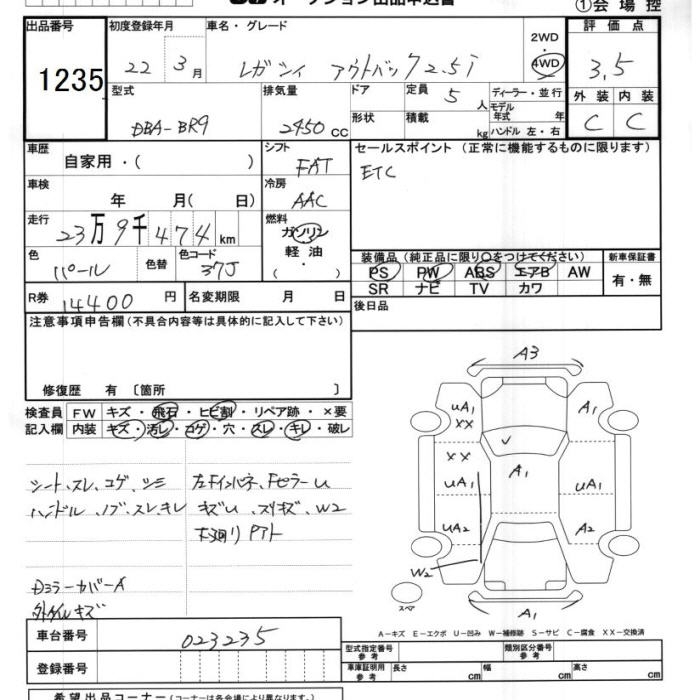 オークション出品申込書
①会場控
出品番号 初度登録年月 車名・グレード 評価点
1235 22 3月 レガシィ アウトバック2.5i 2WD 4WD 3.5
型式 排気量 ドア 定員 5人 ディーラー・並行 外装 内装
DBA-BR9 2450 cc 形状 積載 kg モデル年式 年 ハンドル 左・右 C C
車歴 自家用・( ) シフト FAT セールスポイント (正常に機能するものに限ります)
車検 年 月( 日) 冷房 AAC ETC
走行 23万9千474km 燃料 ガソリン 軽油・( )
色 パール 色替 色コード 37J 装備品(純正品に限り○をつけてください) 新車保証書
PS PW ABS エアB AW 有・無
SR ナビ TV カワ
R券 14400円 名変期限 月 日 後日品
注意事項申告欄(不具合内容等は具体的に記入して下さい)
修復歴 有 〔箇所 〕
検査員 FW キズ・飛石・ヒビ割・リペア跡・×要
記入欄 内装 キズ・汚レ・コゲ・穴・スレ・キレ・破レ
シート、スレ、コゲ、シミ
ハンドル、ノブ、スレ、キレ
左Fインパネ、Fピラーu
キズu、スリキズ、W2
下廻り
Dミラーカバー
キズ
A3
uA1 A1
XX
XX A1
uA1 uA1
uA2 A2
W2
スペア A1
A-キズ E-エクボ U-凹み W-補修跡 S-サビ C-腐食 XX-交換済
車台番号 023235
型式指定番号 参考 類別区分番号 参考
登録番号 車庫証明用 参考 長さ cm 幅 cm 高さ cm
希望出品コーナー(コーナーは各会場により異なります。)